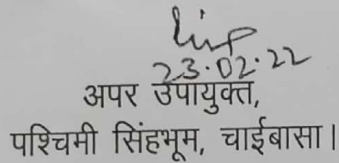 23.02.22
अपर उपायुक्त,
पश्चिमी सिंहभूम, चाईबासा।